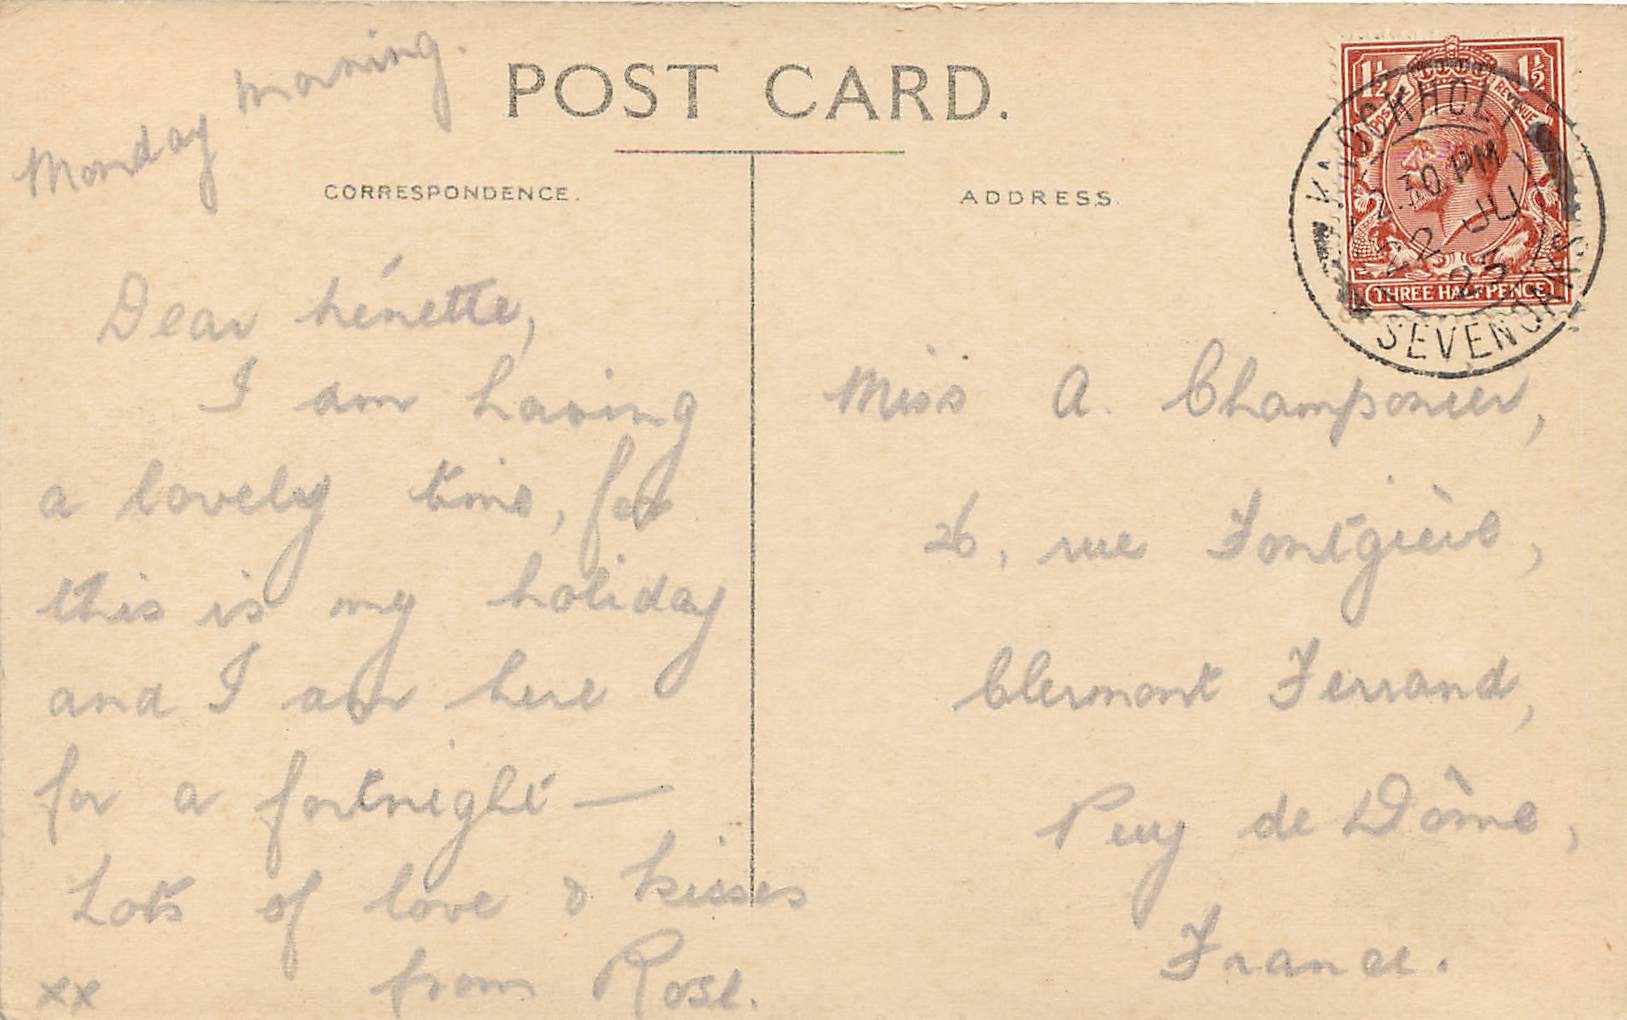 Monday morning.
POST CARD.
CORRESPONDENCE.
Dear hénette,
I am having
a lovely time, for
this is my holiday
and I am here
for a fortnight —
Lots of love & kisses
from Rose.
xx
ADDRESS.
Miss A. Champomier,
26, rue Fontgiève,
Clermont Ferrand,
Puy de Dôme,
France.
1½ 1½
POSTAGE REVENUE
THREE HALFPENCE
KNOCKHOLT
2.30 PM
22 JU
23
SEVENOAKS